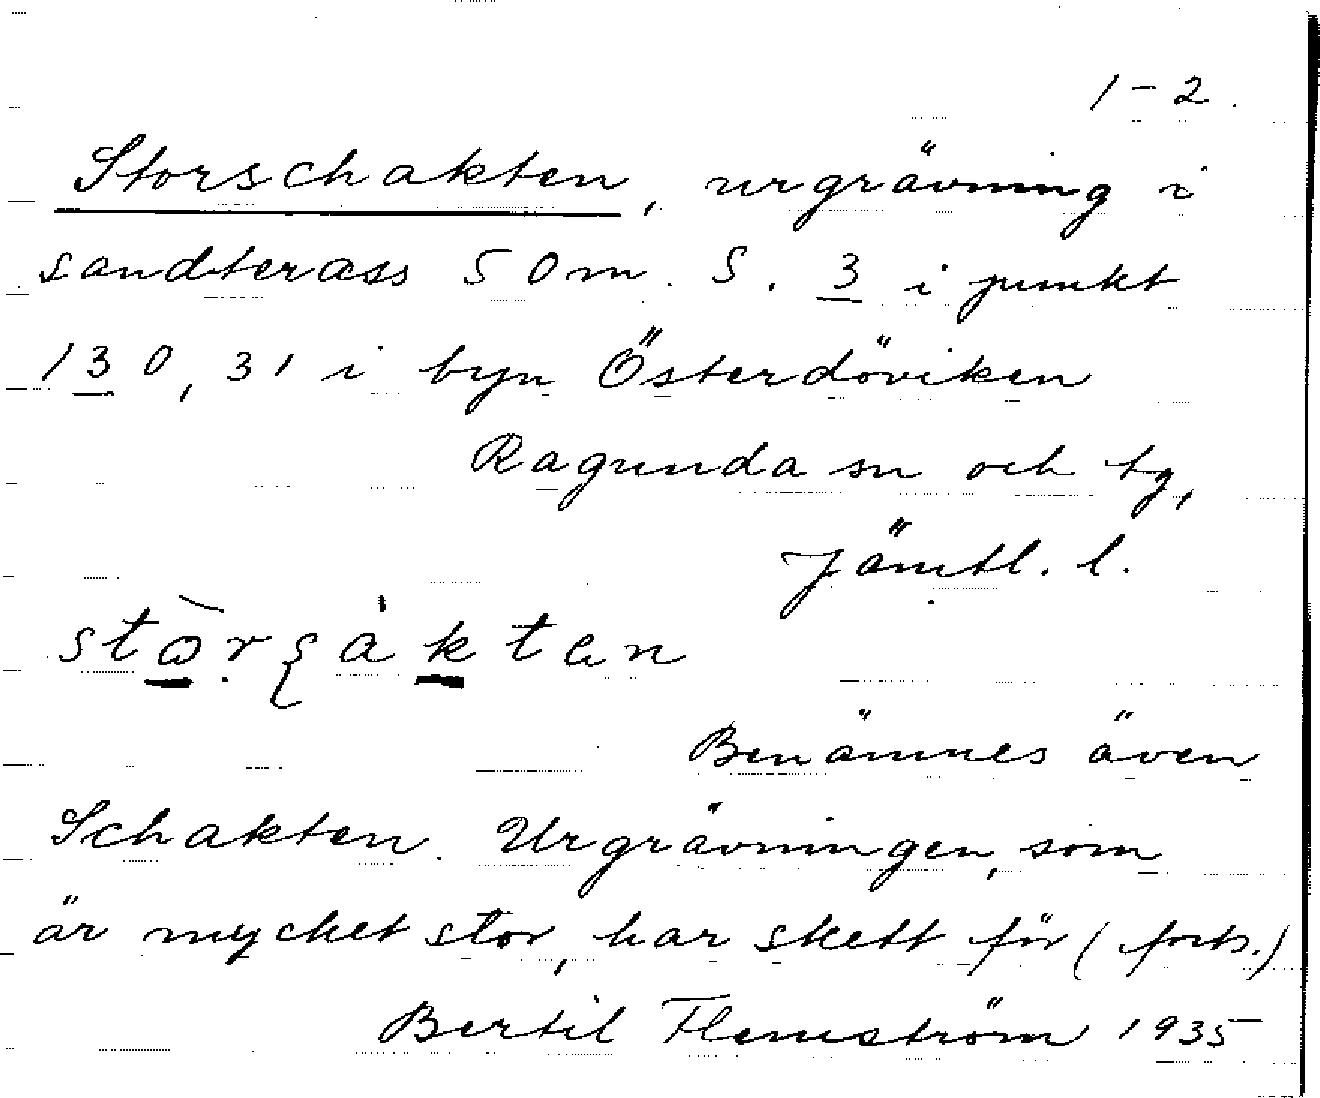 1-2.
Storschakten, urgrävning i
sandterass 50 m. S. 3 i punkt
130,31 i byn Österdöviken
Ragunda sn och tg,
Jämtl. l.
Benämnes även
Schakten. Urgrävningen, som
är mycket stor, har skett för (forts.)
Bertil Flemström 1935